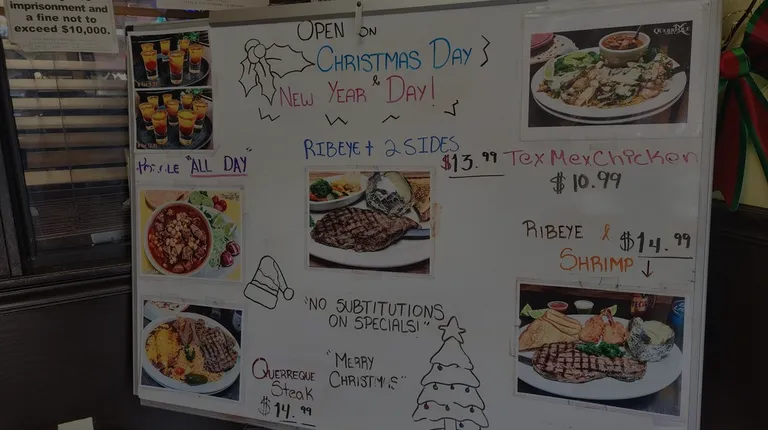 imprisonment and
a fine not to
exceed $10,000.
OPEN on
CHRISTMAS DAY
&
NEW YEAR DAY!
"ALL DAY"
RIBEYE + 2 SIDES
$13.99
TexMexChicken
$10.99
RIBEYE & $14.99
SHRIMP
"NO SUBTITUTIONS
ON SPECIALS!"
"MERRY
QUERREQUE
Steak
$14.99